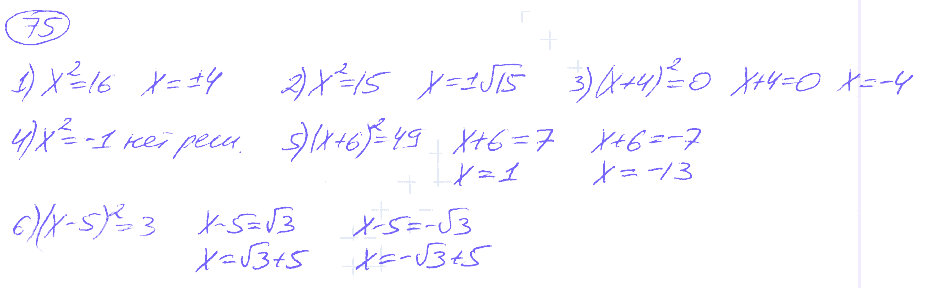 75
1) x²=16 x=±4 2) x²=15 x=±√15 3) (x+4)²=0 x+4=0 x=-4
4) x²=-1 нет реш. 5) (x+6)²=49 x+6=7 x+6=-7
x=1 x=-13
6) (x-5)²=3 x-5=√3 x-5=-√3
x=√3+5 x=-√3+5